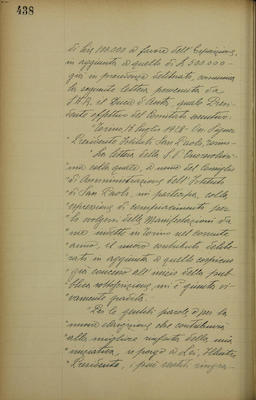 438
di lire 100.000 a favore dell'Esposizione,
in aggiunta a quello di L. 500.000
già in precedenza deliberato, comunica
la seguente lettera pervenuta da
S.A.R. il Duca d'Aosta, quale Presi-
dente effettivo del Comitato esecutivo:
"Torino 18 luglio 1928. On. Signor
"Presidente Istituto San Paolo, Torino -
"La lettera della S.V.
"colla quale, a nome del Consiglio
"di Amministrazione dell'Istituto
"di San Paolo, mi partecipa, colla
"espressione di compiacimento per
"lo svolgersi delle Manifestazioni da
"me indette in Torino nel corrente
"anno, il nuovo contributo delibe-
"rato in aggiunta a quello cospicuo
"già concesso all'inizio della pub-
"blica sottoscrizione, mi è giunta vi-
"vamente gradita.
"Per le gentili parole e per la
"nuova elargizione che contribuirà
"alla migliore riuscita della mia
"iniziativa, io porgo a Lei, Illustre
"Presidente, i più sentiti ringra-